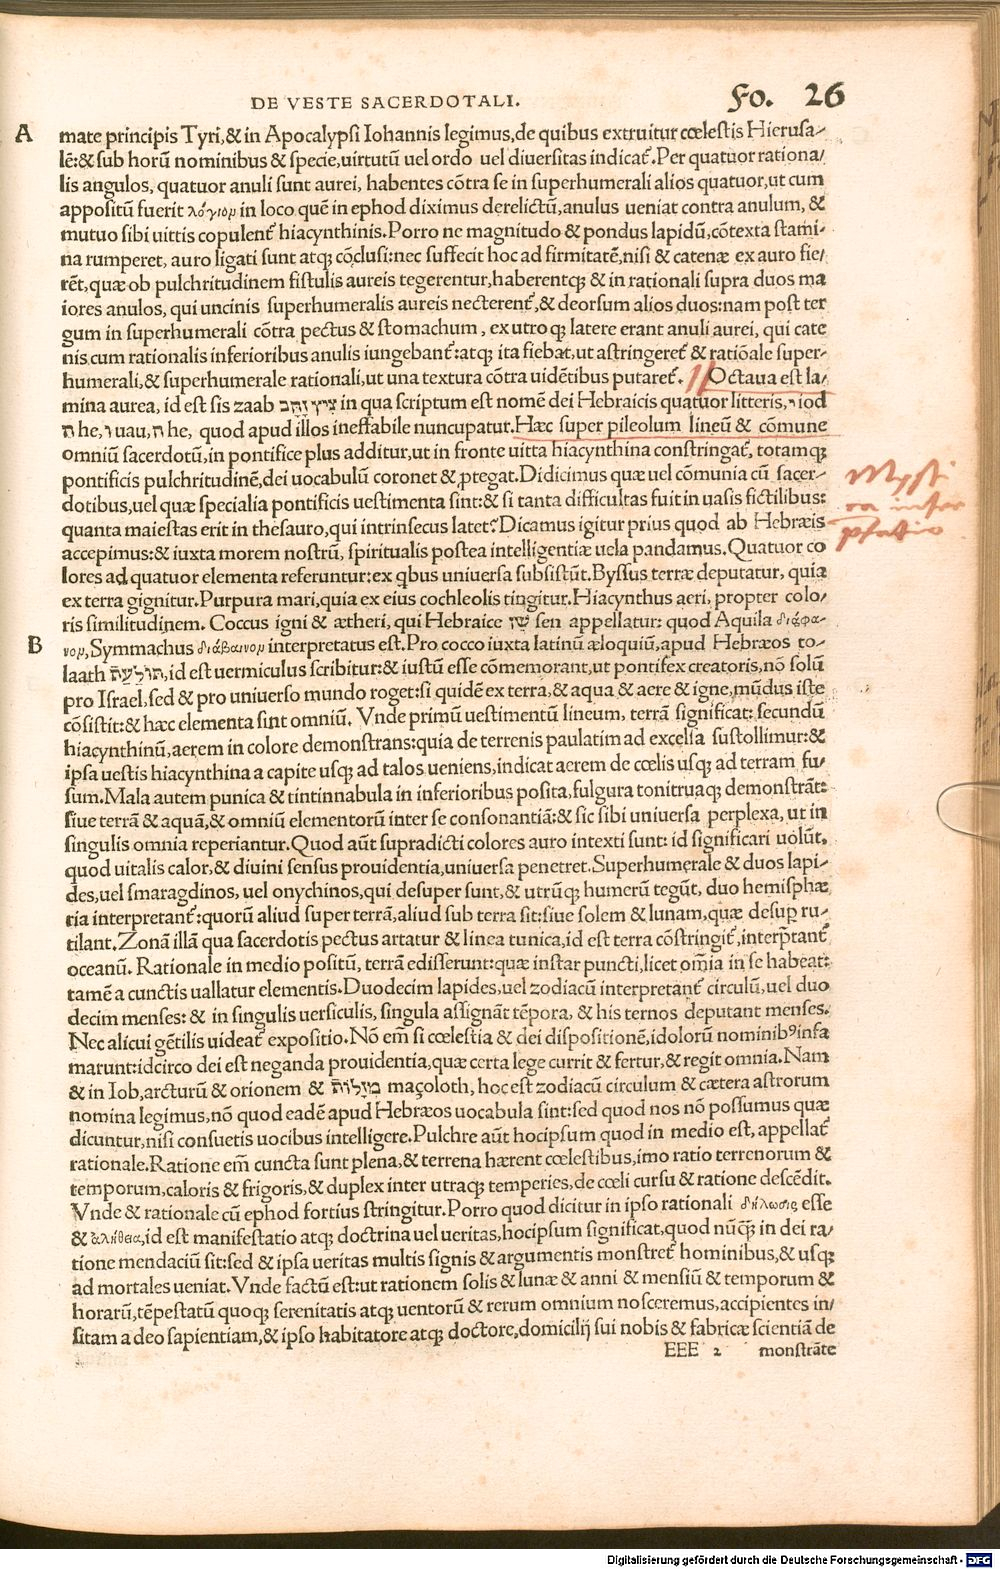 DE VESTE SACERDOTALI. Fo. 26
A mate principis Tyri,& in Apocalypsi Iohannis legimus,de quibus extruitur cœlestis Hierusa-
lē:& sub horū nominibus & specie,uirtutū uel ordo uel diuersitas indicat̃.Per quatuor rationa/
lis angulos, quatuor anuli sunt aurei, habentes cōtra se in superhumerali alios quatuor,ut cum
appositū fuerit λόγιον in loco quē in ephod diximus derelictū,anulus ueniat contra anulum, &
mutuo sibi uittis copulent̃ hiacynthinis.Porro ne magnitudo & pondus lapidū,cōtexta stami-
na rumperet, auro ligati sunt atqꝫ cōclusi:nec suffecit hoc ad firmitatē,nisi & catenæ ex auro fie/
rēt,quæ ob pulchritudinem fistulis aureis tegerentur,haberentqꝫ & in rationali supra duos ma
iores anulos, qui uncinis superhumeralis aureis necterent̃,& deorsum alios duos:nam post ter
gum in superhumerali cōtra pectus & stomachum, ex utroqꝫ latere erant anuli aurei, qui cate
nis cum rationalis inferioribus anulis iungebant̃:atqꝫ ita fiebat,ut astringeret̃ & ratiōale super-
humerali,& superhumerale rationali,ut una textura cōtra uidētibus putaret̃. Octaua est la/
mina aurea, id est sis zaab צִיץ זָהָב in qua scriptum est nomē dei Hebraicis quatuor litteris,י iod
ה he,ו uau,ה he, quod apud illos ineffabile nuncupatur.Hæc super pileolum lineū & cōmune
omniū sacerdotū,in pontifice plus additur,ut in fronte uitta hiacynthina constringat̃, totamqꝫ
pontificis pulchritudinē,dei uocabulū coronet & ꝓtegat.Didicimus quæ uel cōmunia cū sacer-
dotibus,uel quæ specialia pontificis uestimenta sint:& si tanta difficultas fuit in uasis fictilibus:
quanta maiestas erit in thesauro,qui intrinsecus latet?Dicamus igitur prius quod ab Hebræis
accepimus:& iuxta morem nostrū, spiritualis postea intelligentiæ uela pandamus.Quatuor co
lores ad quatuor elementa referuntur:ex qbus uniuersa subsistūt.Byssus terræ deputatur, quia
ex terra gignitur.Purpura mari,quia ex eius cochleolis tingitur.Hiacynthus aeri, propter colo/
ris similitudinem. Coccus igni & ætheri, qui Hebraice שָׁן sen appellatur: quod Aquila διάφα-
B νον,Symmachus διάβαινον interpretatus est.Pro cocco iuxta latinū æloquiū,apud Hebræos to-
laath תּוֹלַעַת,id est uermiculus scribitur:& iustū esse cōmemorant,ut pontifex creatoris,nō solū
pro Israel,sed & pro uniuerso mundo roget:si quidē ex terra,& aqua & aere & igne,mūdus iste
cōsistit:& hæc elementa sint omniū. Vnde primū uestimentū lineum, terrā significat: secundū
hiacynthinū,aerem in colore demonstrans:quia de terrenis paulatim ad excelsa sustollimur:&
ipsa uestis hiacynthina a capite usqꝫ ad talos ueniens,indicat aerem de cœlis usqꝫ ad terram fu/
sum.Mala autem punica & tintinnabula in inferioribus posita,fulgura tonitruaqꝫ demonstrāt:
siue terrā & aquā,& omniū elementorū inter se consonantiā:& sic sibi uniuersa perplexa, ut in
singulis omnia reperiantur.Quod aūt supradicti colores auro intexti sunt: id significari uolūt,
quod uitalis calor,& diuini sensus prouidentia,uniuersa penetret.Superhumerale & duos lapi-
des,uel smaragdinos, uel onychinos,qui desuper sunt,& utrūqꝫ humerū tegūt, duo hemisphæ
ria interpretant̃:quorū aliud super terrā,aliud sub terra sit:siue solem & lunam,quæ desuꝑ ru/
tilant.Zonā illā qua sacerdotis pectus artatur & linea tunica,id est terra cōstringit̃,interp̃tant̃
oceanū. Rationale in medio positū, terrā edisserunt:quæ instar puncti,licet om̄ia in se habeat:
tamē a cunctis uallatur elementis.Duodecim lapides,uel zodiacū interpretant̃ circulū,uel duo
decim menses: & in singulis uersiculis, singula assignāt tēpora, & his ternos deputant menses.
Nec alicui gētilis uideat̃ expositio.Nō em̄ si cœlestia & dei dispositionē,idolorū nominibꝰ infa
marunt:idcirco dei est neganda prouidentia,quæ certa lege currit & fertur,& regit omnia.Nam
& in Iob,arcturū & orionem & מַזָּלוֹת maçoloth, hoc est zodiacū circulum & cætera astrorum
nomina legimus,nō quod eadē apud Hebræos uocabula sint:sed quod nos nō possumus quæ
dicuntur,nisi consuetis uocibus intelligere.Pulchre aūt hocipsum quod in medio est, appellat̃
rationale.Ratione em̄ cuncta sunt plena,& terrena hærent cœlestibus,imo ratio terrenorum &
temporum,caloris & frigoris,& duplex inter utraqꝫ temperies,de cœli cursu & ratione descēdit.
Vnde & rationale cū ephod fortius stringitur.Porro quod dicitur in ipso rationali δήλωσις esse
& ἀλήθεια,id est manifestatio atqꝫ doctrina uel ueritas,hocipsum significat,quod nūqꝫ̄ in dei ra/
tione mendaciū sit:sed & ipsa ueritas multis signis & argumentis monstret̃ hominibus,& usqꝫ
ad mortales ueniat.Vnde factū est:ut rationem solis & lunæ & anni & mensiū & temporum &
horarū,tēpestatū quoqꝫ serenitatis atqꝫ uentorū & rerum omnium nosceremus,accipientes in/
sitam a deo sapientiam,& ipso habitatore atqꝫ doctore,domicilij sui nobis & fabricæ scientiā de
EEE 2 monstrāte
Digitalisierung gefördert durch die Deutsche Forschungsgemeinschaft - DFG